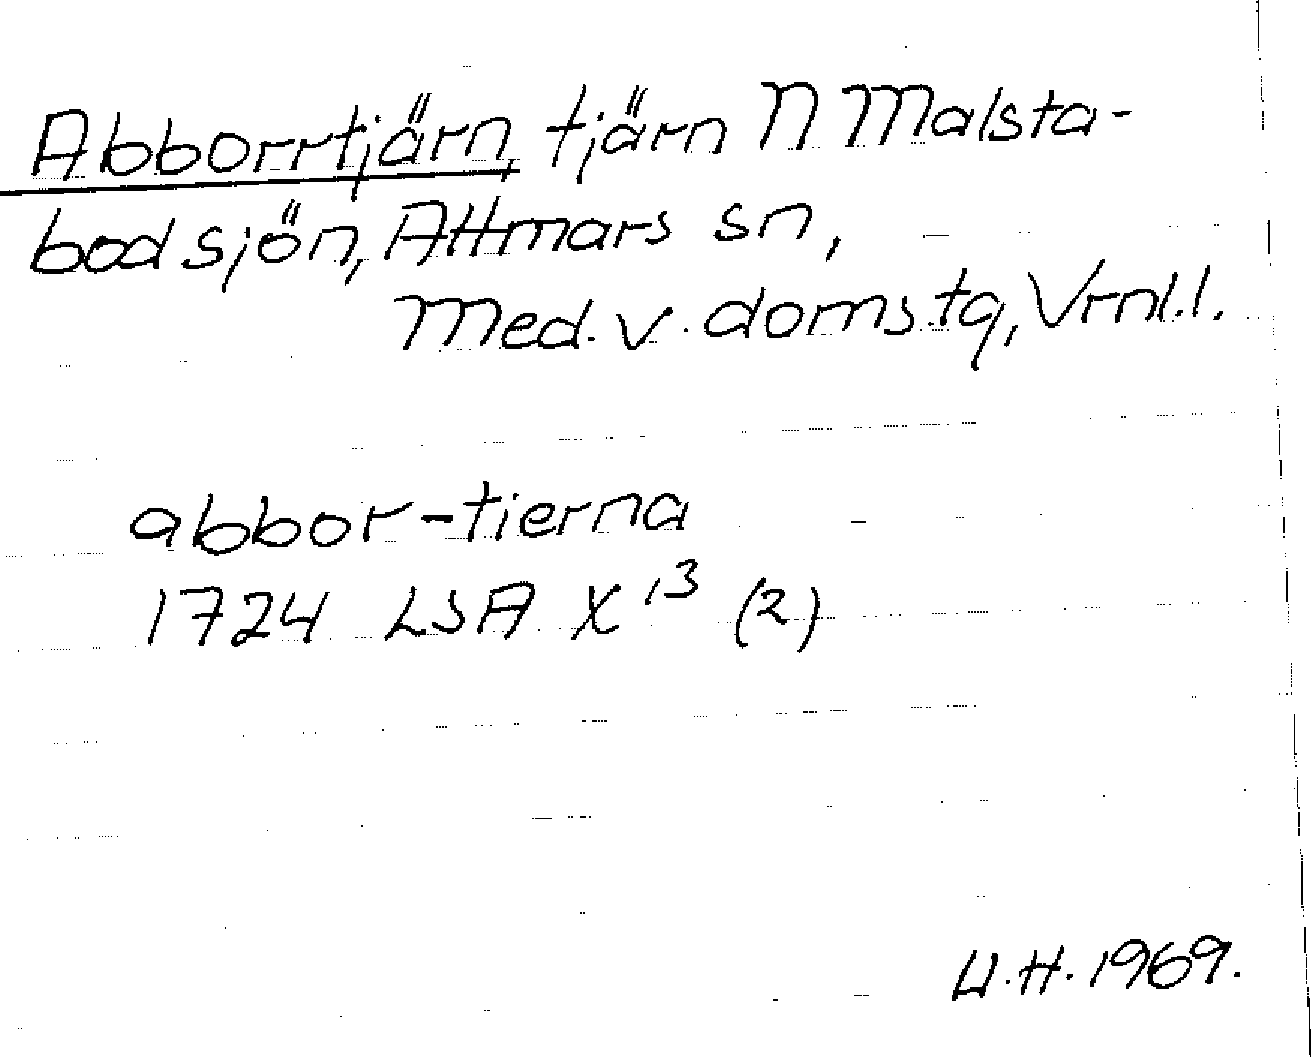 Abborrtjärn, tjärn N Malsta-
bodsjön, Attmars sn,
Med. v. doms.tg, Vrnl.l.
abbor-tierna
1724 LSA X 13 (2)
U.H. 1969.